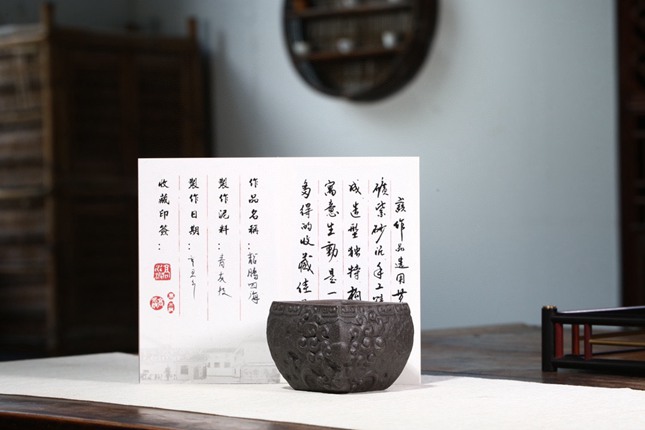 该作品选用黄
矿紫砂泥手工
成造型独特
寓意生动是一
易得的收藏佳
作品名称：貂腾四海
製作泥料：青灰段
製作日期：
收藏印签：